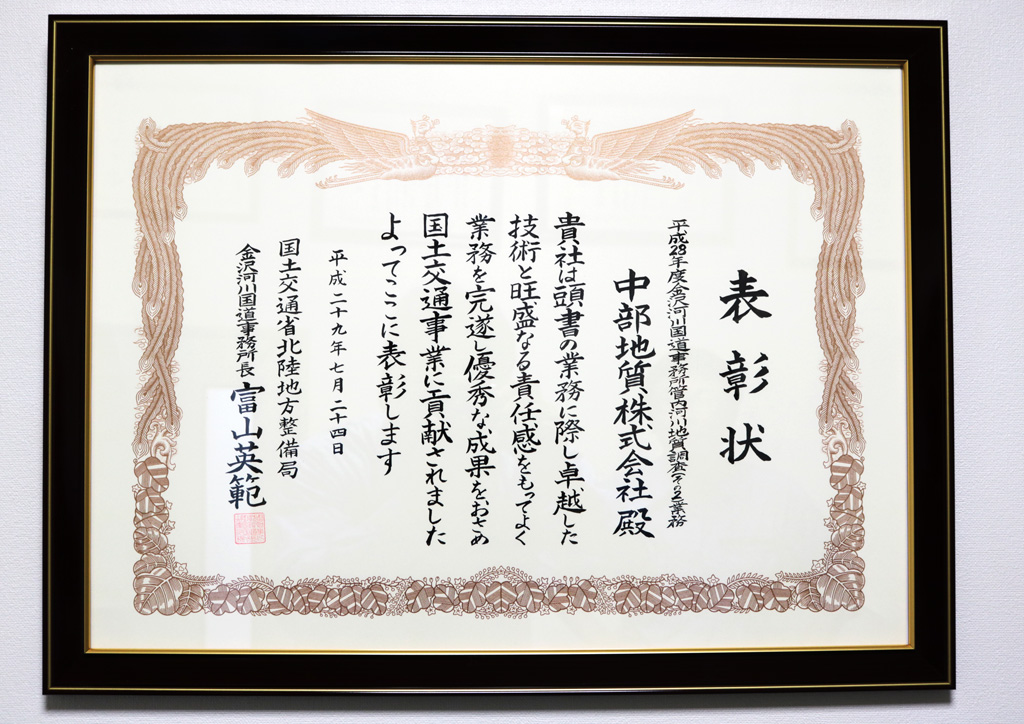 表彰状
平成28年度金沢河川国道事務所管内河川地質調査(その2)業務
中部地質株式会社殿
貴社は頭書の業務に際し卓越した
技術と旺盛なる責任感をもってよく
業務を完遂し優秀な成果をおさめ
国土交通事業に貢献されました
よってここに表彰します
平成二十九年七月二十四日
国土交通省北陸地方整備局
金沢河川国道事務所長 富山英範